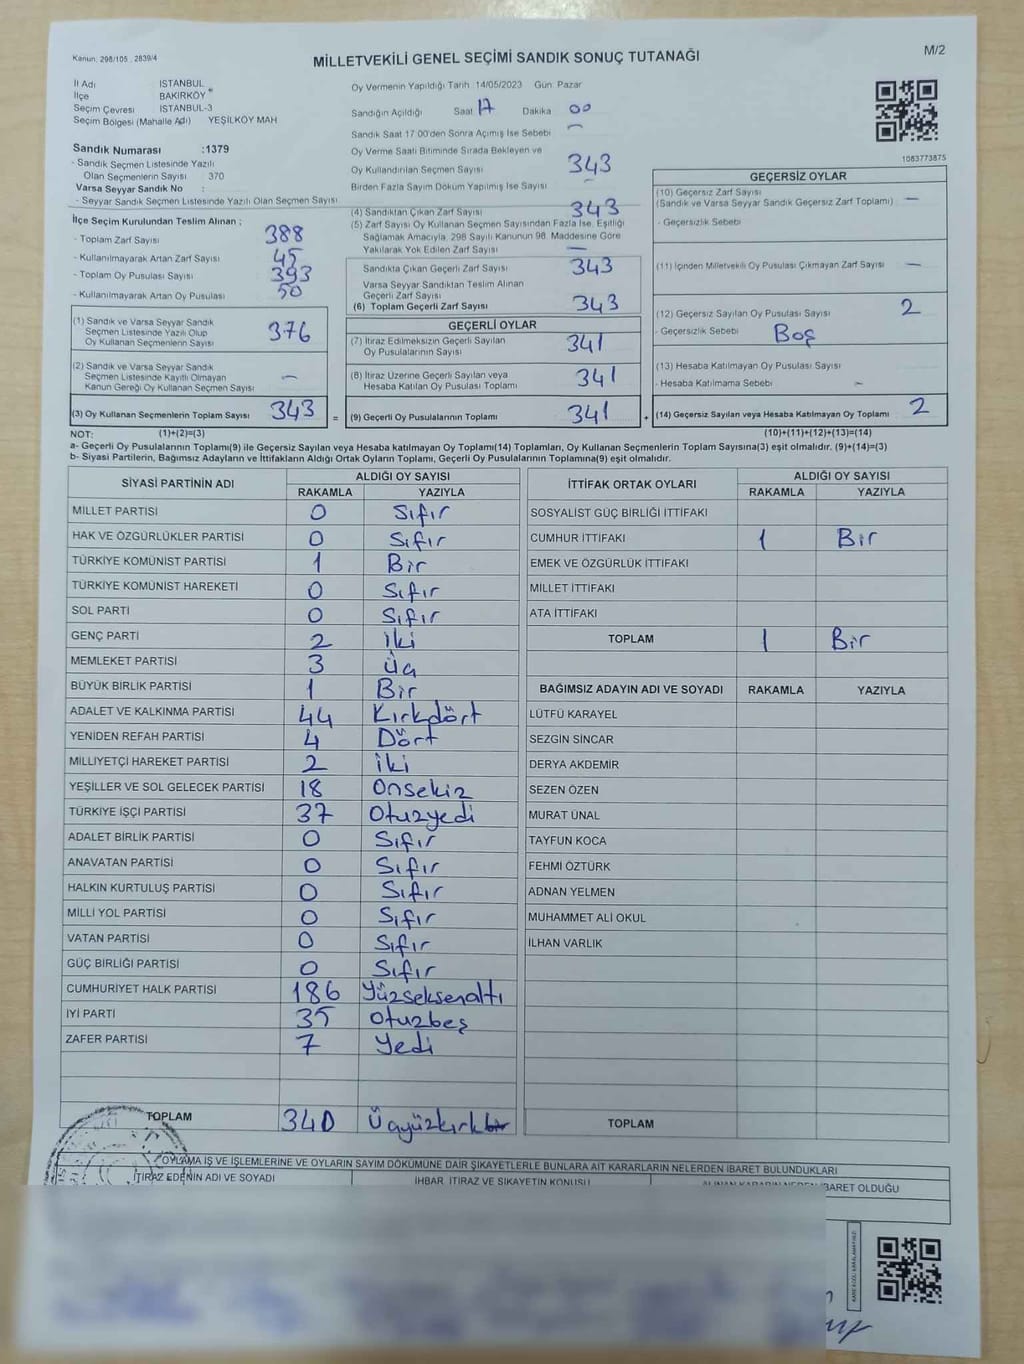 Kanun: 298/105 , 2839/4
MİLLETVEKİLİ GENEL SEÇİMİ SANDIK SONUÇ TUTANAĞI
M/2
İl Adı İSTANBUL
İlçe BAKIRKÖY
Seçim Çevresi İSTANBUL-3
Seçim Bölgesi (Mahalle Adı) YEŞİLKÖY MAH
Sandık Numarası :1379
- Sandık Seçmen Listesinde Yazılı
Olan Seçmenlerin Sayısı : 370
Varsa Seyyar Sandık No :
- Seyyar Sandık Seçmen Listesinde Yazılı Olan Seçmen Sayısı
Oy Vermenin Yapıldığı Tarih :14/05/2023 Gün: Pazar
Sandığın Açıldığı Saat 17 Dakika 00
Sandık Saat 17:00'den Sonra Açımış İse Sebebi —
Oy Verme Saati Bitiminde Sırada Bekleyen ve
Oy Kullandırılan Seçmen Sayısı 343
Birden Fazla Sayım Döküm Yapılmış İse Sayısı
1083773875
İlçe Seçim Kurulundan Teslim Alınan ;
- Toplam Zarf Sayısı 388
- Kullanılmayarak Artan Zarf Sayısı 45
- Toplam Oy Pusulası Sayısı 393
- Kullanılmayarak Artan Oy Pusulası 50
(1) Sandık ve Varsa Seyyar Sandık
Seçmen Listesinde Yazılı Olup
Oy Kullanan Seçmenlerin Sayısı 376
(2) Sandık ve Varsa Seyyar Sandık
Seçmen Listesinde Kayıtlı Olmayan
Kanun Gereği Oy Kullanan Seçmen Sayısı —
(3) Oy Kullanan Seçmenlerin Toplam Sayısı 343 =
(4) Sandıktan Çıkan Zarf Sayısı 343
(5) Zarf Sayısı Oy Kullanan Seçmen Sayısından Fazla İse, Eşitliği
Sağlamak Amacıyla, 298 Sayılı Kanunun 98. Maddesine Göre
Yakılarak Yok Edilen Zarf Sayısı —
Sandıkta Çıkan Geçerli Zarf Sayısı 343
Varsa Seyyar Sandıktan Teslim Alınan
Geçerli Zarf Sayısı
(6) Toplam Geçerli Zarf Sayısı 343
GEÇERLİ OYLAR
(7) İtiraz Edilmeksizin Geçerli Sayılan
Oy Pusulalarının Sayısı 341
(8) İtiraz Üzerine Geçerli Sayılan veya
Hesaba Katılan Oy Pusulası Toplamı 341
(9) Geçerli Oy Pusulalarının Toplamı 341 +
GEÇERSİZ OYLAR
(10) Geçersiz Zarf Sayısı
(Sandık ve Varsa Seyyar Sandık Geçersiz Zarf Toplamı) —
- Geçersizlik Sebebi
(11) İçinden Milletvekili Oy Pusulası Çıkmayan Zarf Sayısı —
(12) Geçersiz Sayılan Oy Pusulası Sayısı 2
- Geçersizlik Sebebi Boş
(13) Hesaba Katılmayan Oy Pusulası Sayısı
- Hesaba Katılmama Sebebi —
(14) Geçersiz Sayılan veya Hesaba Katılmayan Oy Toplamı 2
NOT: (1)+(2)=(3) (10)+(11)+(12)+(13)=(14)
a- Geçerli Oy Pusulalarının Toplamı(9) ile Geçersiz Sayılan veya Hesaba katılmayan Oy Toplamı(14) Toplamları, Oy Kullanan Seçmenlerin Toplam Sayısına(3) eşit olmalıdır. (9)+(14)=(3)
b- Siyasi Partilerin, Bağımsız Adayların ve İttifakların Aldığı Ortak Oyların Toplamı, Geçerli Oy Pusulalarının Toplamına(9) eşit olmalıdır.
SİYASİ PARTİNİN ADI ALDIĞI OY SAYISI
RAKAMLA YAZIYLA
MİLLET PARTİSİ 0 Sıfır
HAK VE ÖZGÜRLÜKLER PARTİSİ 0 Sıfır
TÜRKİYE KOMÜNİST PARTİSİ 1 Bir
TÜRKİYE KOMÜNİST HAREKETİ 0 Sıfır
SOL PARTİ 0 Sıfır
GENÇ PARTİ 2 İki
MEMLEKET PARTİSİ 3 Üç
BÜYÜK BİRLİK PARTİSİ 1 Bir
ADALET VE KALKINMA PARTİSİ 44 Kırkdört
YENİDEN REFAH PARTİSİ 4 Dört
MİLLİYETÇİ HAREKET PARTİSİ 2 İki
YEŞİLLER VE SOL GELECEK PARTİSİ 18 Onsekiz
TÜRKİYE İŞÇİ PARTİSİ 37 Otuzyedi
ADALET BİRLİK PARTİSİ 0 Sıfır
ANAVATAN PARTİSİ 0 Sıfır
HALKIN KURTULUŞ PARTİSİ 0 Sıfır
MİLLİ YOL PARTİSİ 0 Sıfır
VATAN PARTİSİ 0 Sıfır
GÜÇ BİRLİĞİ PARTİSİ 0 Sıfır
CUMHURİYET HALK PARTİSİ 186 Yüzseksenaltı
İYİ PARTİ 35 Otuzbeş
ZAFER PARTİSİ 7 Yedi
TOPLAM 340 Üçyüzkırk
İTTİFAK ORTAK OYLARI ALDIĞI OY SAYISI
RAKAMLA YAZIYLA
SOSYALİST GÜÇ BİRLİĞİ İTTİFAKI
CUMHUR İTTİFAKI 1 Bir
EMEK VE ÖZGÜRLÜK İTTİFAKI
MİLLET İTTİFAKI
ATA İTTİFAKI
TOPLAM 1 Bir
BAĞIMSIZ ADAYIN ADI VE SOYADI RAKAMLA YAZIYLA
LÜTFÜ KARAYEL
SEZGİN SİNCAR
DERYA AKDEMİR
SEZEN ÖZEN
MURAT ÜNAL
TAYFUN KOCA
FEHMİ ÖZTÜRK
ADNAN YELMEN
MUHAMMET ALİ OKUL
İLHAN VARLIK
TOPLAM
OYLAMA İŞ VE İŞLEMLERİNE VE OYLARIN SAYIM DÖKÜMÜNE DAİR ŞİKAYETLERLE BUNLARA AİT KARARLARIN NELERDEN İBARET BULUNDUKLARI
İTİRAZ EDENİN ADI VE SOYADI İHBAR, İTİRAZ VE ŞİKAYETİN KONUSU ALINAN KARARIN NEDEN İBARET OLDUĞU